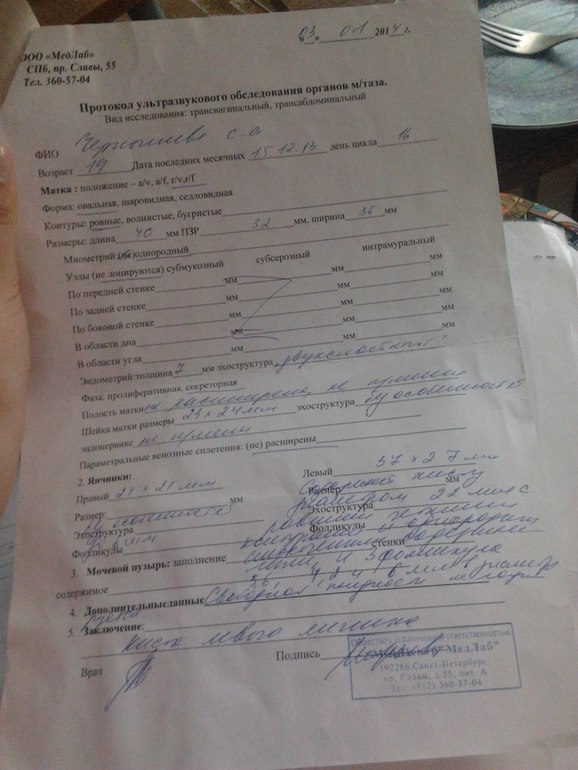 «03» 01 2014 г.
ООО «МедЛаб»
СПб, пр. Славы, 55
Тел. 360-57-04
Протокол ультразвукового обследования органов м/таза.
Вид исследования: трансвагинальный, трансабдоминальный
ФИО
Возраст 19 Дата последних месячных 15.12.13 день цикла 16
Матка : положение – a/v, a/f, r/v,r/f
Форма: овальная, шаровидная, седловидная
Контуры: ровные, волнистые, бугристые
Размеры: длина 40 мм ПЗР 32 мм, ширина 36 мм
Миометрий:(не)однородный
Узлы (не лоцируются) субмукозный субсерозный интрамуральный
По передней стенке мм мм мм
По задней стенке мм мм мм
По боковой стенке мм мм мм
В области дна мм мм мм
В области угла мм мм мм
Эндометрий:толщина 7 мм эхоструктура „двухслойный"
Фаза: пролиферативная, секреторная
Полость матки не расширена, не
Шейка матки размеры 23 × 24 мм эхоструктура б/особенностей
эндоцервикс не
Параметральные венозные сплетения: (не) расширены
2. Яичники: Левый 37 × 27 мм
Правый 24 × 21 мм Размер мм
Размер: мм содержит кисту
Эхоструктура б/особенностей Эхоструктура диаметром 22 мм с
Фолликулы мм Фолликулы ровными
3. Мочевой пузырь: заполнение стенки
содержимое и 3 фолликула
4. Дополнительные данные Свободной жидкости не
5. Заключение:
киста левого яичника
Врач Подпись
Общество с ограниченной ответственностью
"МедЛаб"
192286, Санкт-Петербург,
пр. Славы, д.55, лит. А
Тел. (812) 360-57-04